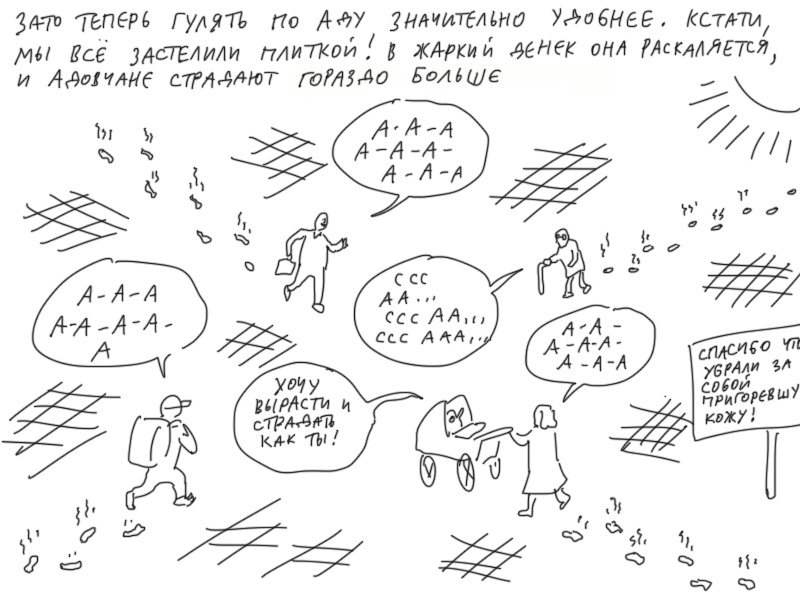 ЗАТО ТЕПЕРЬ ГУЛЯТЬ ПО АДУ ЗНАЧИТЕЛЬНО УДОБНЕЕ. КСТАТИ,
МЫ ВСЁ ЗАСТЕЛИЛИ ПЛИТКОЙ! В ЖАРКИЙ ДЕНЕК ОНА РАСКАЛЯЕТСЯ,
И АДОВЧАНЕ СТРАДАЮТ ГОРАЗДО БОЛЬШЕ
А-А-А
А-А-А-
А-А-А
ССС
АА...
ССС АА,,,
ССС ААА,...
А-А-А
АА-А-А-
А
А-А-
А-А-А-
А-А-А
ХОЧУ
ВЫРАСТИ И
СТРАДАТЬ
КАК ТЫ!
СПАСИБО ЧТ
УБРАЛИ ЗА
СОБОЙ
ПРИГОРЕВШУ
КОЖУ!